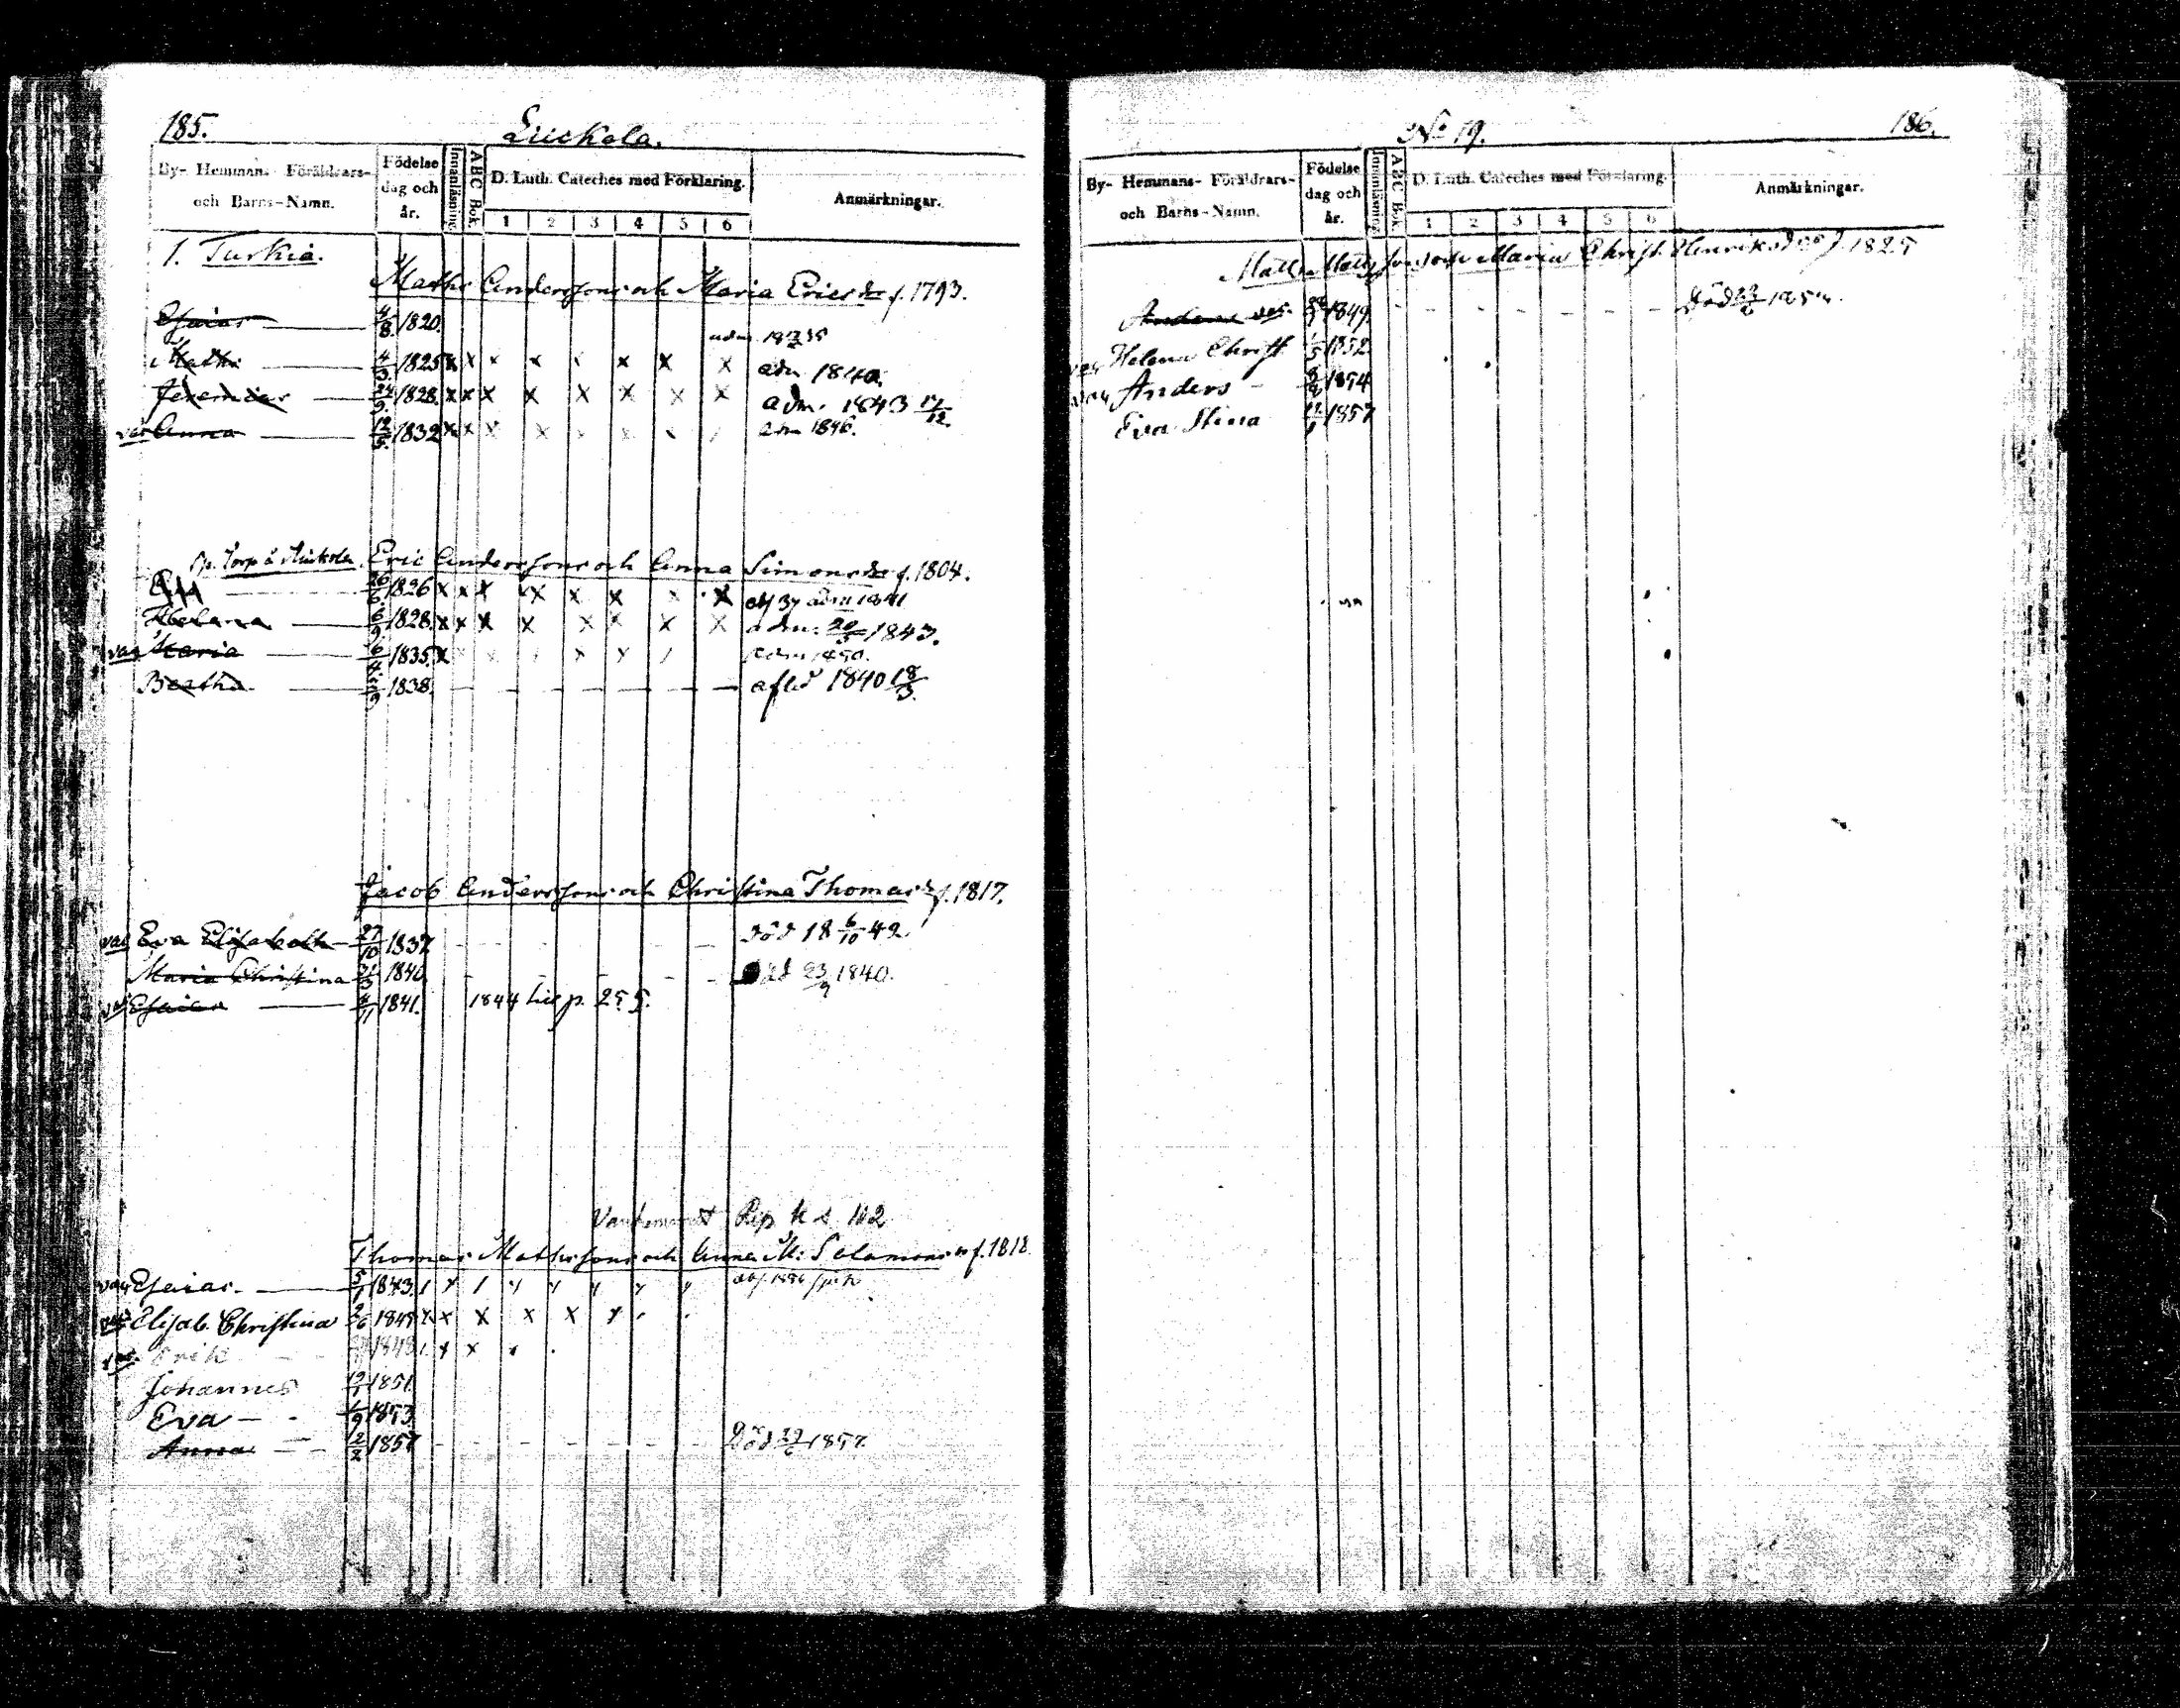 185.
Luckola.
By- Hemmans- Föräldrars- och Barns-Namn.
Födelse dag och år.
Innanläsning
ABC Bok.
D. Luth. Cateches med Förklaring.
1 2 3 4 5 6
Anmärkningar.
1. Turkia.
Maths Andersson och Maria Ericsdr f. 1793.
Esaias 4/8 1820.
Maths 4/3. 1825 x x x x x x x adm 1840.
Jeremias 24/9. 1828. x x x x x x x x adm. 1843 17/12.
vac Anna 12/5. 1832 x x x x adm 1846.
Eric Andersson och Anna Simonsdr f. 1804.
26/6 1826 x x x x x x x x adm 1841
Helena 6/9 1828. x x x x x x x x adm. 1843.
vac Maria 1835 x x x adm 1850.
Beatha 1838. aflid 1840 18/3.
Jacob Andersson och Christina Thomasdr f. 1817.
vac Eva Elisabeth 27/10 1837 död 18 6/10 42
Maria Christina 1840. död 23/9 1840.
vac Esaias 4/11 1841. 1844 til p. 255.
Rip k s 162
Thomas Mathsson och Anna M: Salamonsdr f. 1818.
vac Esaias. 5/1 1843.
vac Elisab. Christina 2/6 1845 x x x x x
vac Erik 1848
Johannes 1851.
Eva 1/9 1853
Anna 12/2 1857 Död 1857.
No 19.
186.
By- Hemmans- Föräldrars- och Barns-Namn.
Födelse dag och år.
Innanläsning
ABC Bok
D. Luth. Cateches med Förklaring.
1 2 3 4 5 6
Anmärkningar.
Matts Mattsson och Maria Christ. Henriksdr f. 1825
Anders vac. 1849. Död
vac Helena Christ 1852
vac Anders 1854
Eva Stina 1857